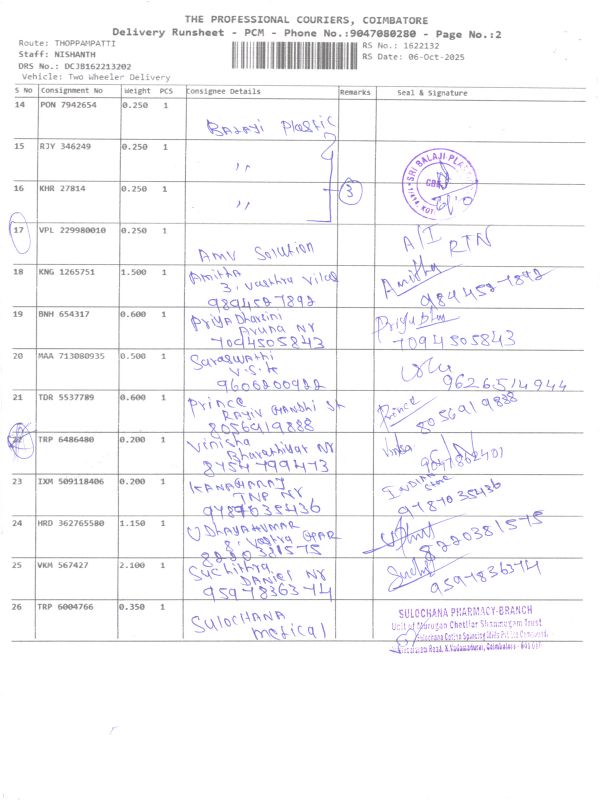 THE PROFESSIONAL COURIERS, COIMBATORE
Delivery Runsheet - PCM - Phone No.:9047080280 - Page No.:2
Route: THOPPAMPATTI
RS No.: 1622132
Staff: NISHANTH
RS Date: 06-Oct-2025
DRS No.: DCJB162213202
Vehicle: Two Wheeler Delivery
S No Consignment No Weight PCS Consignee Details Remarks Seal & Signature
14 PON 7942654 0.250 1
Balaji Plastic
15 RJY 346249 0.250 1
,,
SRI BALAJI PLA
16 KHR 27814 0.250 1
,,
3
17 VPL 229980010 0.250 1
AMV Solution
A/I RTN
18 KNG 1265751 1.500 1
Amitha
3, Vasthra Vilas
9894527892
Amitha
9894527892
19 BNH 654317 0.600 1
PriyaDharsini
Aruna Nr
7094505843
Priya
7094505843
20 MAA 713080935 0.500 1
Saraswathi
V.S.K
9606200922
9626514944
21 TDR 5537789 0.600 1
Prince
Rajiv Gandhi St
8056919888
Prince
8056919888
22 TRP 6486480 0.200 1
Vinisha
Bharathidar Nr
8754799473
9047862401
23 IXM 509118406 0.200 1
KANAGARAJ
TNP NY
9787035436
INDIAN
9787035436
24 HRD 362765580 1.150 1
UDHAYAKUMAR
8220381575
8220381575
25 VKM 567427 2.100 1
Suchithra
DANIEL NY
9597836374
Suchi
9597836374
26 TRP 6004766 0.350 1
SULOCHANA
medical
SULOCHANA PHARMACY-BRANCH
Unit of Murugan Chettiar Shanmugam Trust
Sulochana Cotton Spinning Mills Pvt Ltd Compound,
Road, K.Vadamadurai, Coimbatore - 641 017